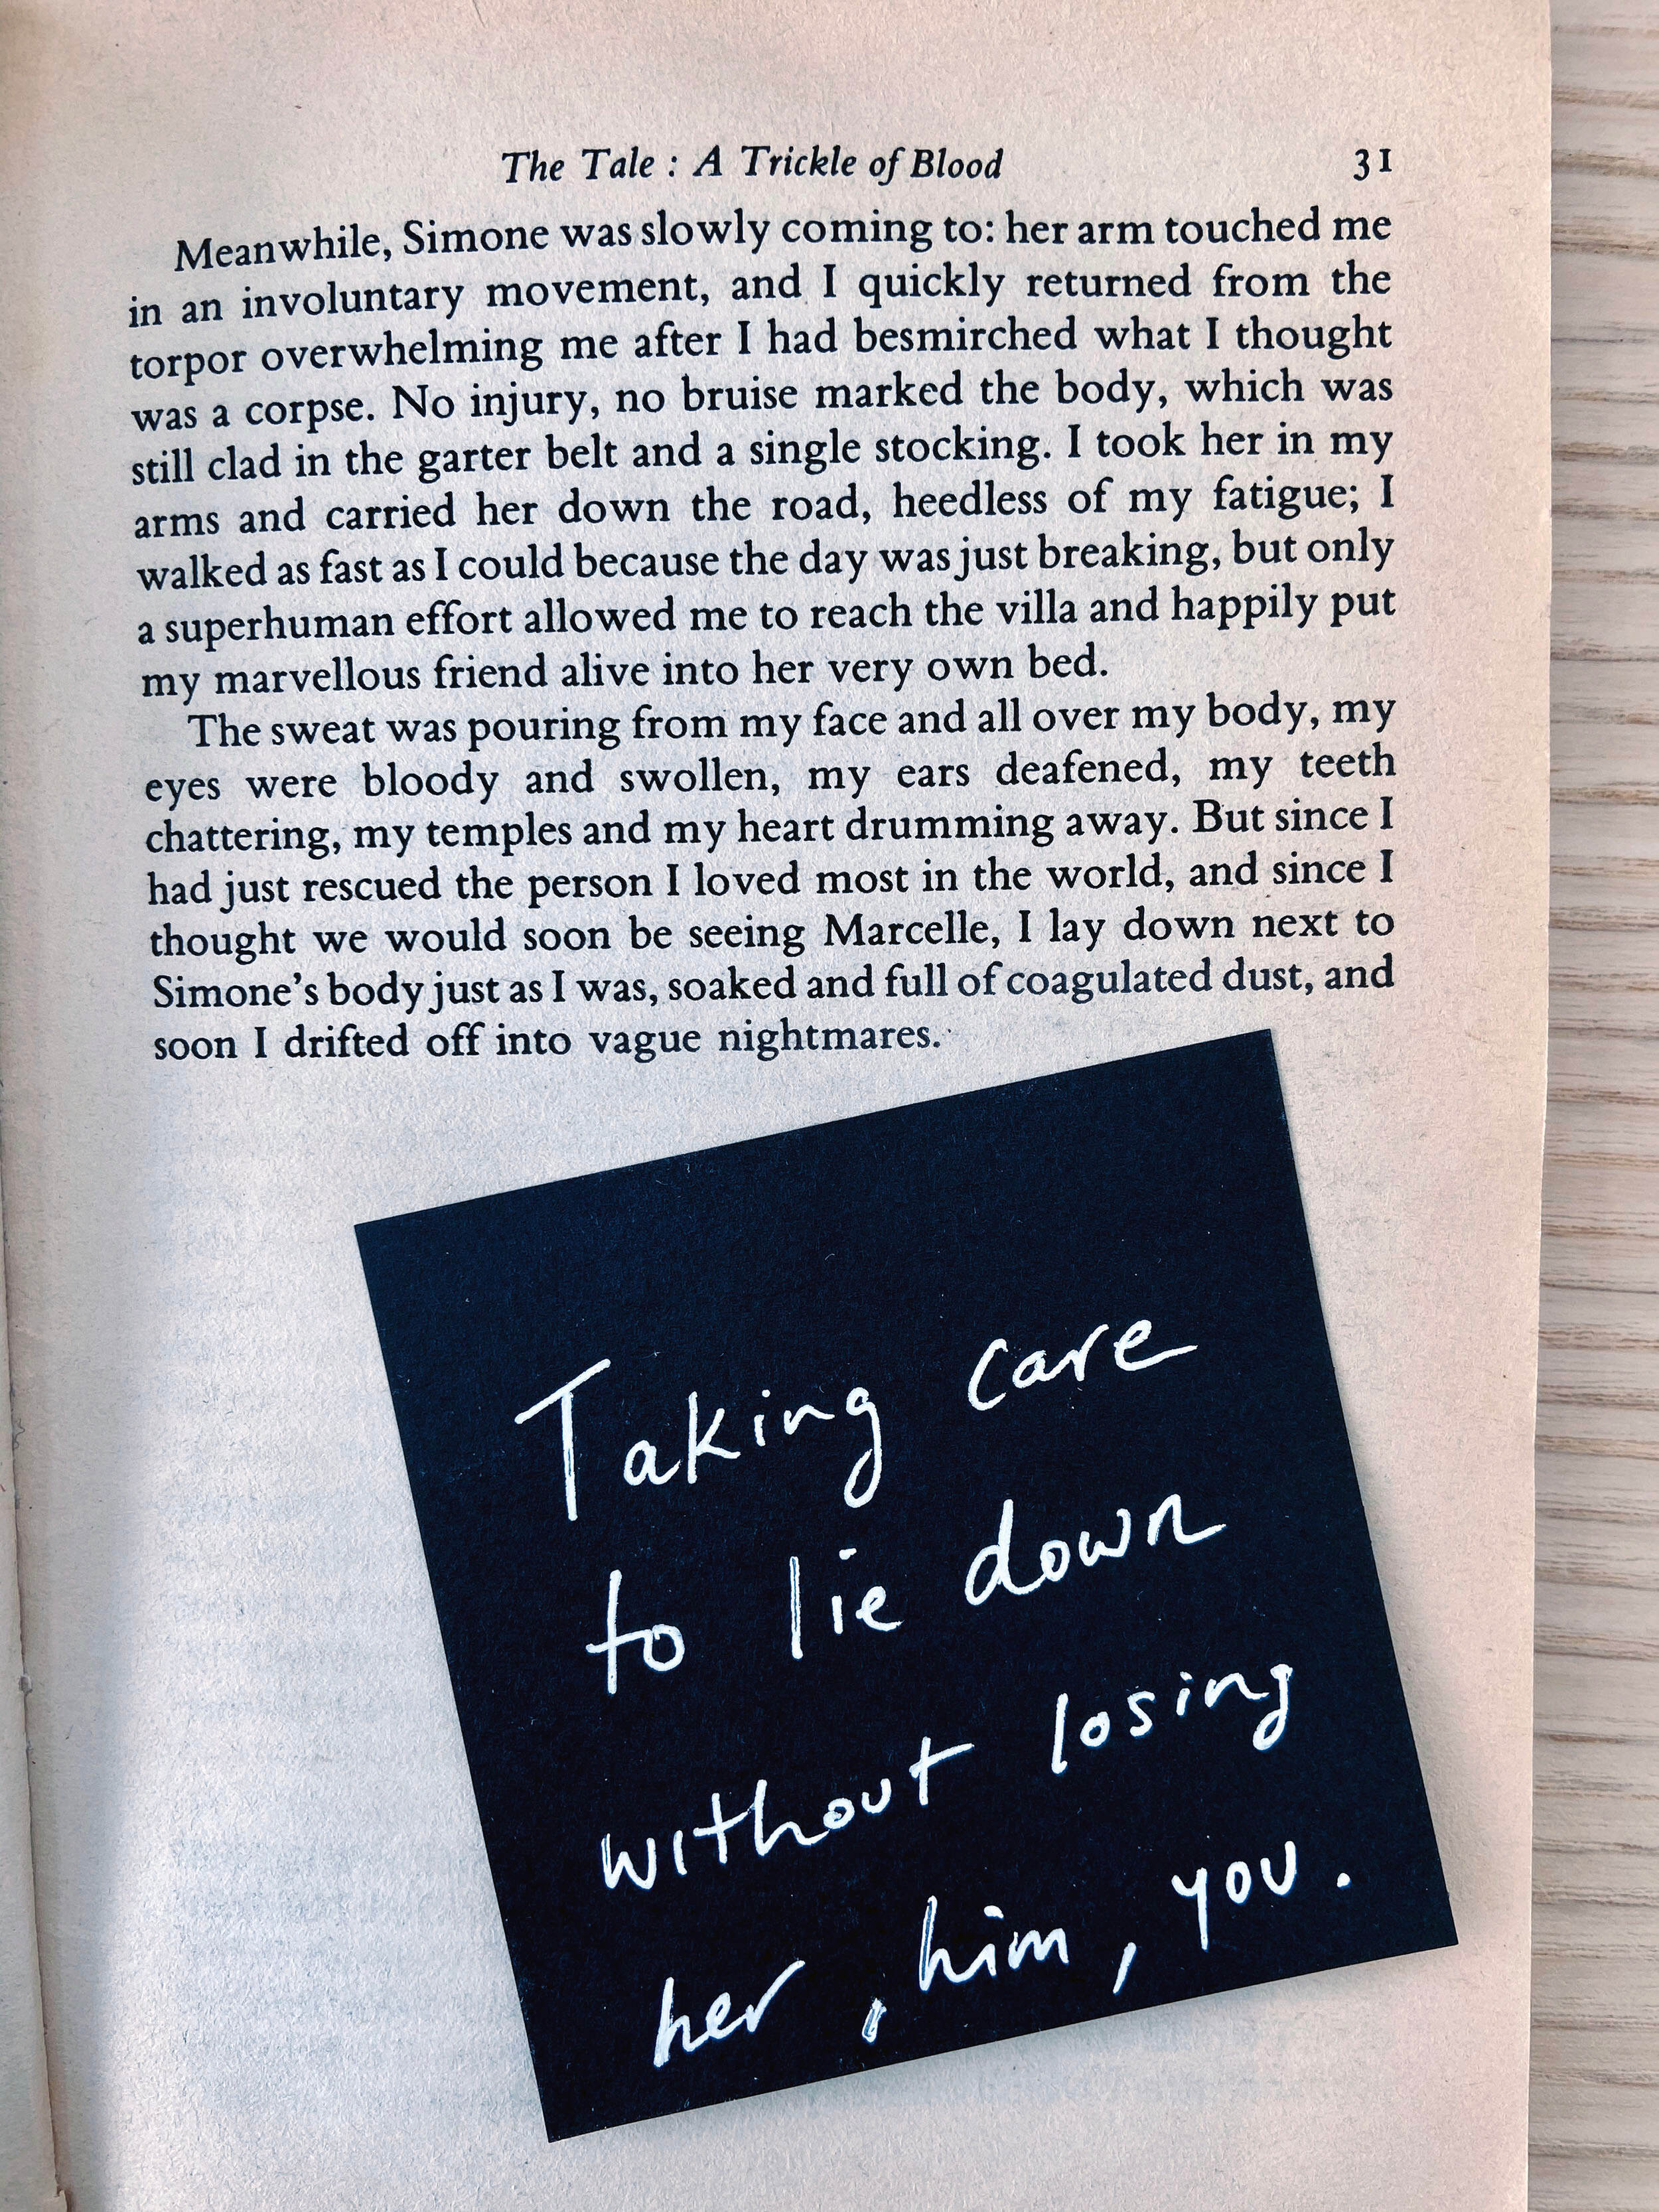 The Tale : A Trickle of Blood 31
Meanwhile, Simone was slowly coming to: her arm touched me
in an involuntary movement, and I quickly returned from the
torpor overwhelming me after I had besmirched what I thought
was a corpse. No injury, no bruise marked the body, which was
still clad in the garter belt and a single stocking. I took her in my
arms and carried her down the road, heedless of my fatigue; I
walked as fast as I could because the day was just breaking, but only
a superhuman effort allowed me to reach the villa and happily put
my marvellous friend alive into her very own bed.
The sweat was pouring from my face and all over my body, my
eyes were bloody and swollen, my ears deafened, my teeth
chattering, my temples and my heart drumming away. But since I
had just rescued the person I loved most in the world, and since I
thought we would soon be seeing Marcelle, I lay down next to
Simone's body just as I was, soaked and full of coagulated dust, and
soon I drifted off into vague nightmares.
Taking care
to lie down
without losing
her, him, you.